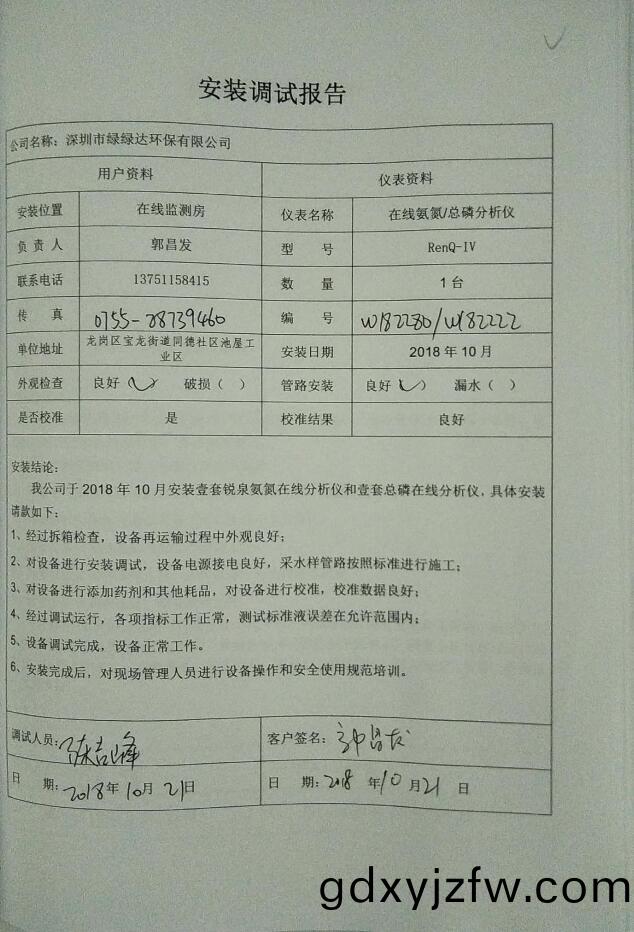 安装调试报告
公司名称：深圳市绿绿达环保有限公司
用户资料 仪表资料
安装位置 在线监测房 仪表名称 在线氨氮/总磷分析仪
负责人 郭昌发 型号 RenQ-IV
联系电话 13751158415 数量 1台
传真 0755-28739460 编号 W182280/W182222
单位地址 龙岗区宝龙街道同德社区池屋工
业区 安装日期 2018年10月
外观检查 良好（✓） 破损（ ） 管路安装 良好（✓） 漏水（ ）
是否校准 是 校准结果 良好
安装结论：
我公司于2018年10月安装壹套锐泉氨氮在线分析仪和壹套总磷在线分析仪，具体安装
请款如下：
1、经过拆箱检查，设备再运输过程中外观良好；
2、对设备进行安装调试，设备电源接电良好，采水样管路按照标准进行施工；
3、对设备进行添加药剂和其他耗品，对设备进行校准，校准数据良好；
4、经过调试运行，各项指标工作正常，测试标准液误差在允许范围内；
5、设备调试完成，设备正常工作。
6、安装完成后，对现场管理人员进行设备操作和安全使用规范培训。
调试人员：陈吉峰 客户签名：
日期：2018年10月21日 日期：2018年10月21日
gdxyjzfw.com